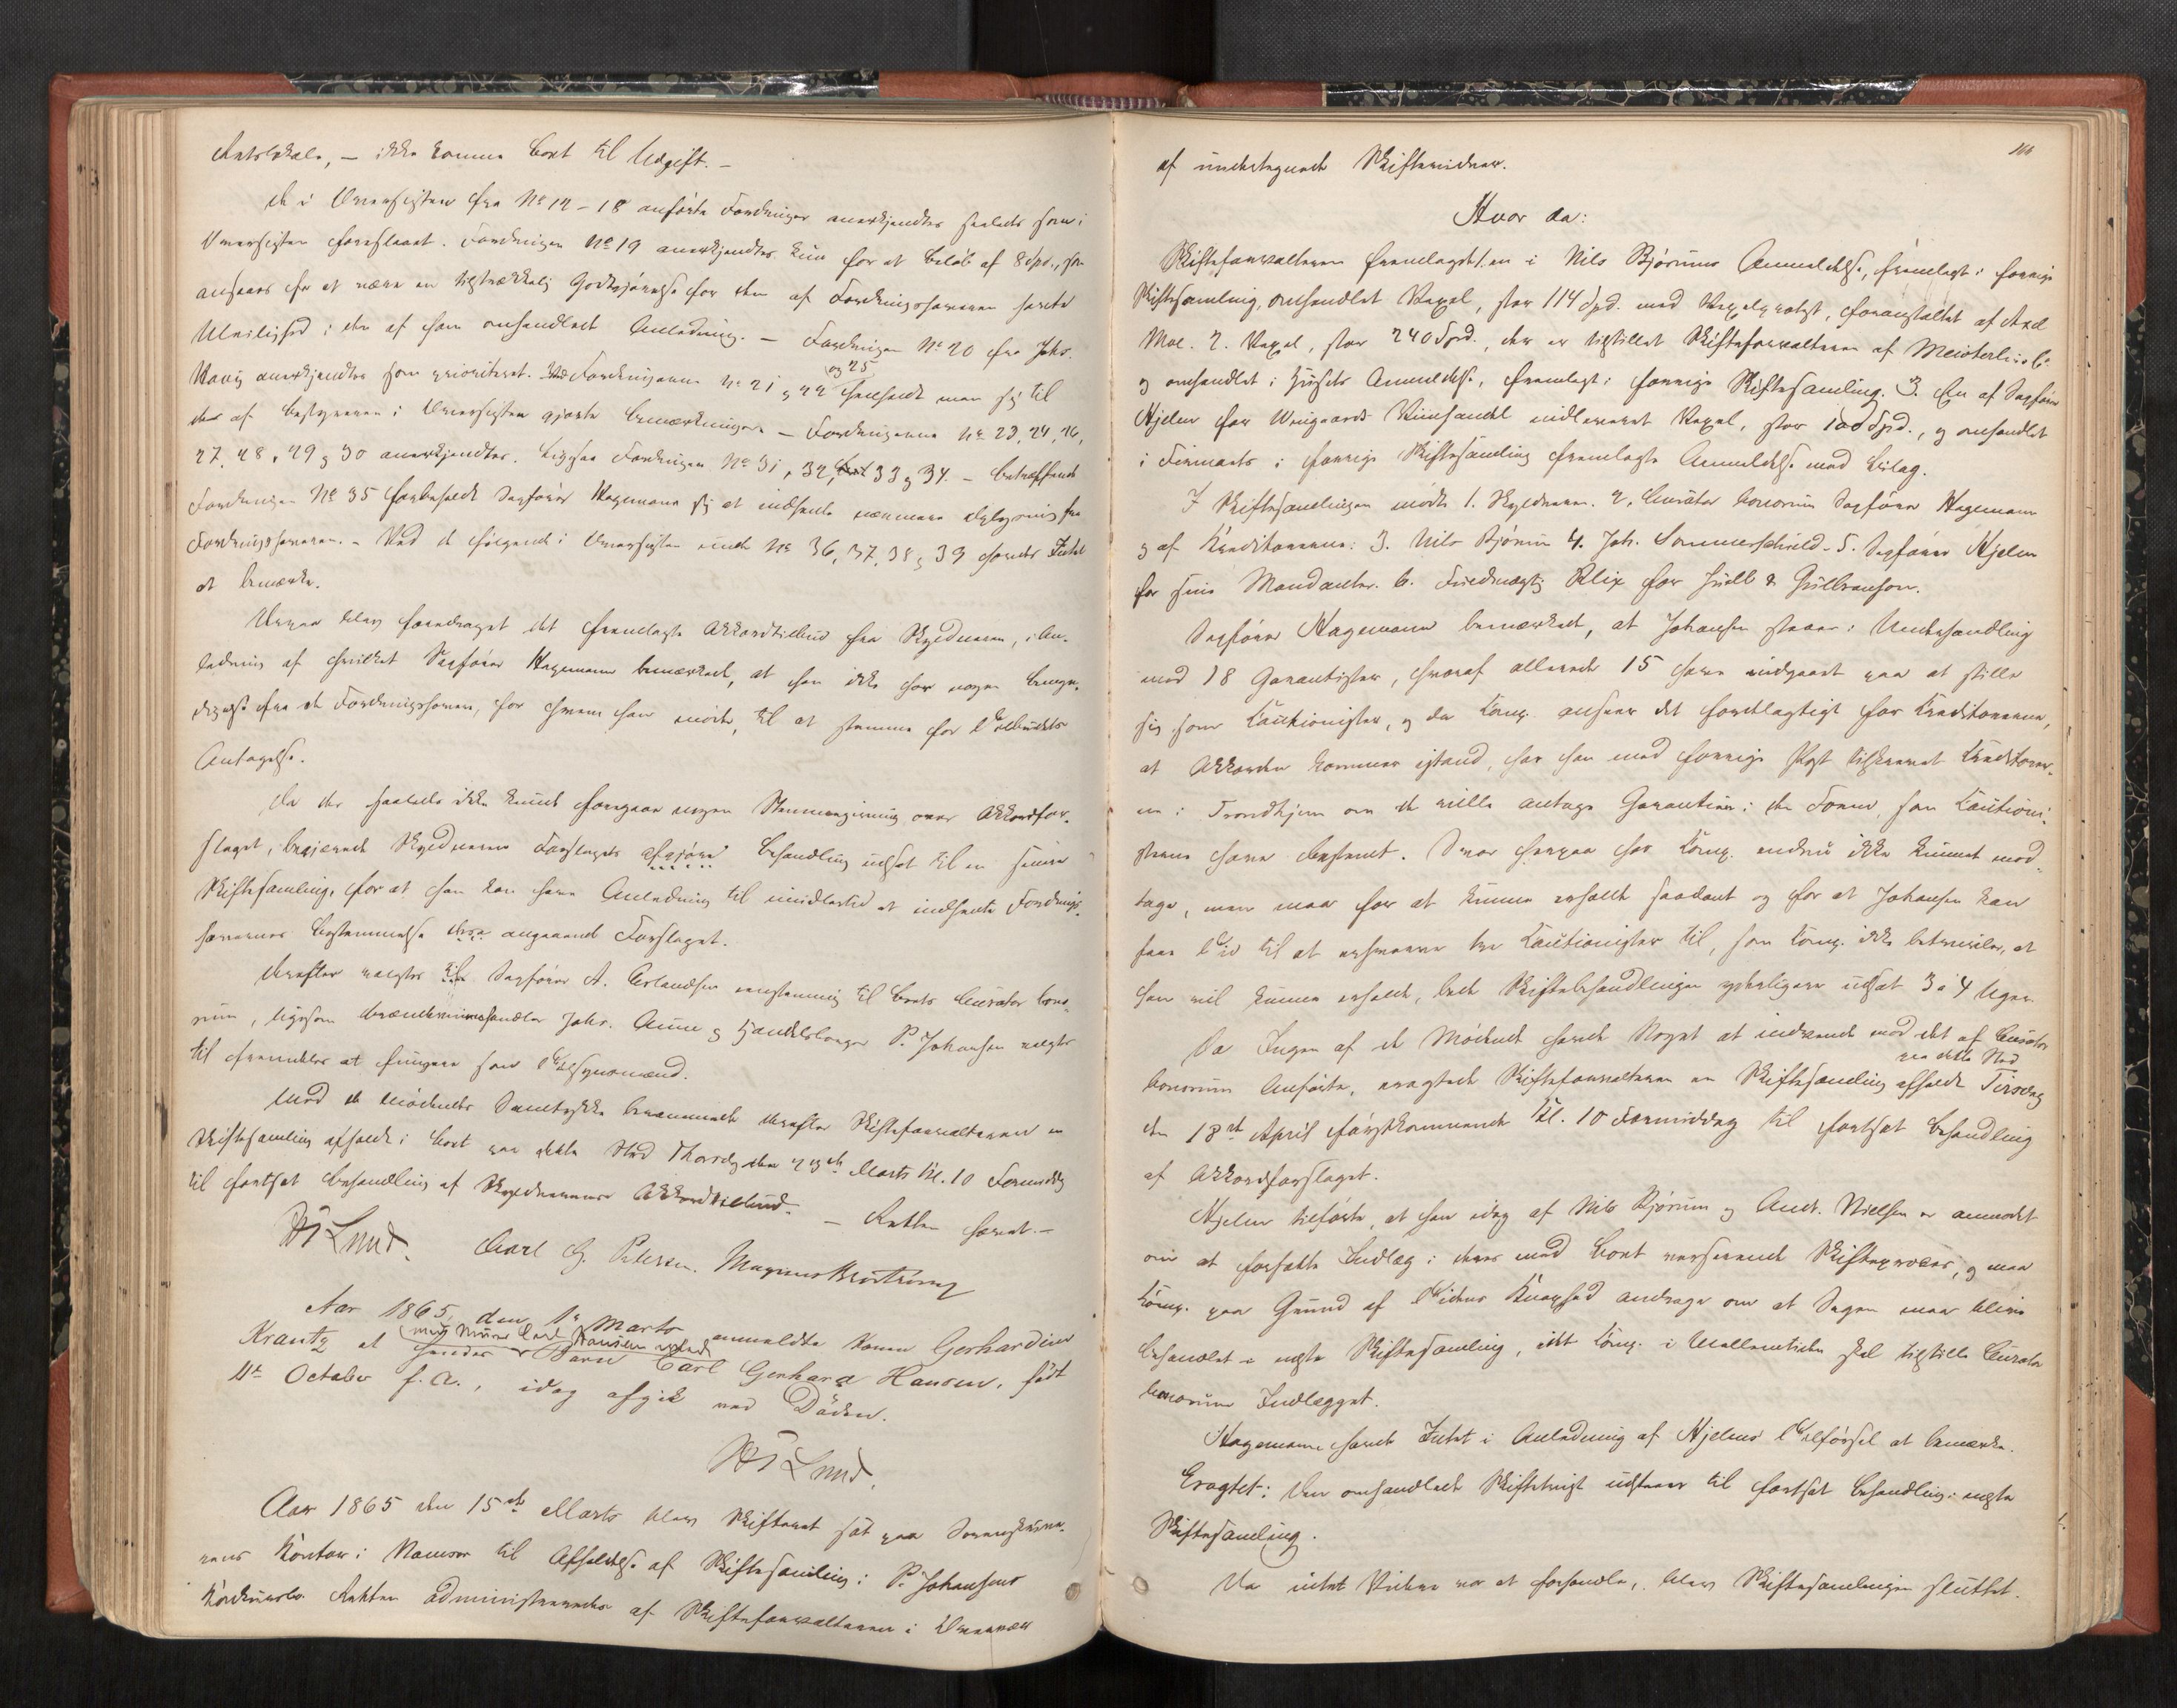 Retslokale, — ikke komme Boet til Udgift. —
De i Oversigten fra No 12 - 18 anførte Fordringer anerkjendtes saaledes som i
Oversigten foreslaaet. Fordringen No 19 anerkjendtes kun for et Beløb af 8 Spd., som
ansaaes for at være en tilstrækkelig Godtgjørelse for den af Fordringshaveren havte
Uleilighed i den af ham omhandlede Anledning. — Fordringen No 20 fra Johs.
Havig anerkjendtes som prioriteret. Ved Fordringerne No 21, 22 og 25 henholdt man sig til
de af Bestyreren i Oversigten gjorte Bemærkninger — Fordringerne No 23, 24, 26,
27, 28, 29 og 30 anerkjendtes. Ligesaa Fordringen No 31, 32, 33 og 34. — Betræffende
Fordringen No 35 forbeholdt Sagfører Hagemann sig at indhente nærmere Oplysning fra
Fordringshaveren. — Ved de følgende i Oversigten under No 36, 37, 38 og 39 havdes Intet
at bemærke.
Derpaa blev foredraget det fremlagte Akkordtilbud fra Skyldneren, i An-
ledning af hvilket Sagfører Hagemann bemærkede, at han ikke har nogen Bemyn-
digelse fra de Fordringshavere, for hvem han møder, til at stemme for Tilbudets
Antagelse.
Da der saaledes ikke kunde foregaae nogen Stemmegivning over Akkordfor-
slaget, begjærede Skyldneren Forslagets afgjøre Behandling udsat til en senere
Skiftesamling, for at han kan have Anledning til imidlertid at indhente Fordrings-
havernes Bestemmelse angaaende Forslaget.
Derefter valgtes Sagfører A. Erlandsen eenstemmig til Boets Curator bono-
rum, ligesom Brændeviinshandler Johs. Aune og Handelsborger P. Johansen valgtes
til fremdeles at fungere som Tilsynsmænd.
Med de Mødendes Samtykke berammede derefter Skifteforvalteren en
Skiftesamling afholdt i Boet paa dette Sted Thorsdag den 23de Marts Kl. 10 Formiddag
til fortsat Behandling af Skyldnerens Akkordtilbud. — Retten hævet. —
H Lund. Carl G. Petersen. Magnus Brostrøm
Aar 1865, den 1e Marts anmeldte Konen Gerhardine
Krantz at hendes med Murer Carl Hansen avlede Barn Carl Gerhard Hansen, født
11te October f. A., idag afgik ved Døden.
H Lund.
Aar 1865 den 15de Marts blev Skifteret sat paa Sorenskrive-
rens Kontor i Namsos til Afholdelse af Skiftesamling i P. Johansens
Konkursbo. Retten administreredes af Skifteforvalteren i Overvær
166
af undertegnede Skiftevidner.
Hvor da:
Skifteforvalteren fremlagde 1. en i Nils Bjørums Anmeldelse, fremlagt i forrige
Skiftesamling, omhandlet Vexel, stor 114 Spd. med Vexelprotest, foranstaltet af And
Moe. 2. Vexel, stor 240 Spd., der er tilstillet Skifteforvalteren af Meisterlin & C
og omhandlet i Husets Anmeldelse, fremlagt i forrige Skiftesamling. 3. En af Sagfører
Hjelm for Wingaards Viinhandel indleveret Vexel, stor 100 Spd., og omhandlet
i Firmaets i forrige Skiftesamling fremlagte Anmeldelse med Bilag.
I Skiftesamlingen mødte 1. Skyldneren. 2. Curator bonorum Sagfører Hagemann
og af Kreditorerne: 3. Nils Bjørum 4. Joh. Sommerschield - 5. Sagfører Hjelm
for sine Mandanter. 6. Fuldmægtig Klix for Huitt & Gulbranson.
Sagfører Hagemann bemærkede, at Johansen staaer i Underhandling
med 18 Garantister, hvoraf allerede 15 have indgaaet paa at stille
sig som Kautionister, og da Komp. anseer det fordelagtigt for Kreditorerne,
at Akkorden kommer istand, har han med forrige Post tilskrevet Kreditorer-
ne i Trondhjem om de ville antage Garantien i den Form, som Kautioni-
sterne have bestemt. Svar herpaa har Komp. endnu ikke kunnet mod-
tage, men maa for at kunne erholde saadant og for at Johansen kan
faae Tid til at erhverve tre Kautionister til, som Komp. ikke betvivler, at
han vil kunne erholde, bede Skiftebehandlingen yderligere udsat 3 á 4 Uger.
Da Ingen af de Mødende havde Noget at indvende mod det af Curator
bonorum Anførte, eragtede Skifteforvalteren en Skiftesamling afholdt paa dette Sted Tirsdag
den 18de April førstkommende Kl. 10 Formiddag til fortsat Behandling
af Akkordforslaget.
Hjelm tilførte, at han idag af Nils Bjørum og Andr. Nielsen er anmodet
om at forfatte Indlæg i deres med Boet verserende Skifteproces, og maa
Komp. paa Grund af Tidens Knaphed andrage om at Sagen maa blive
behandlet i næste Skiftesamling, idet Komp. i Mellemtiden skal tilstille Curator
bonorum Indlægget.
Hagemann havde Intet i Anledning af Hjelms Tilførsel at bemærke.
Eragtet: Den omhandlede Skiftetvist udstaaer til fortsat Behandling i næste
Skiftesamling.
Da intet Videre var at forhandle, blev Skiftesamlingen sluttet.